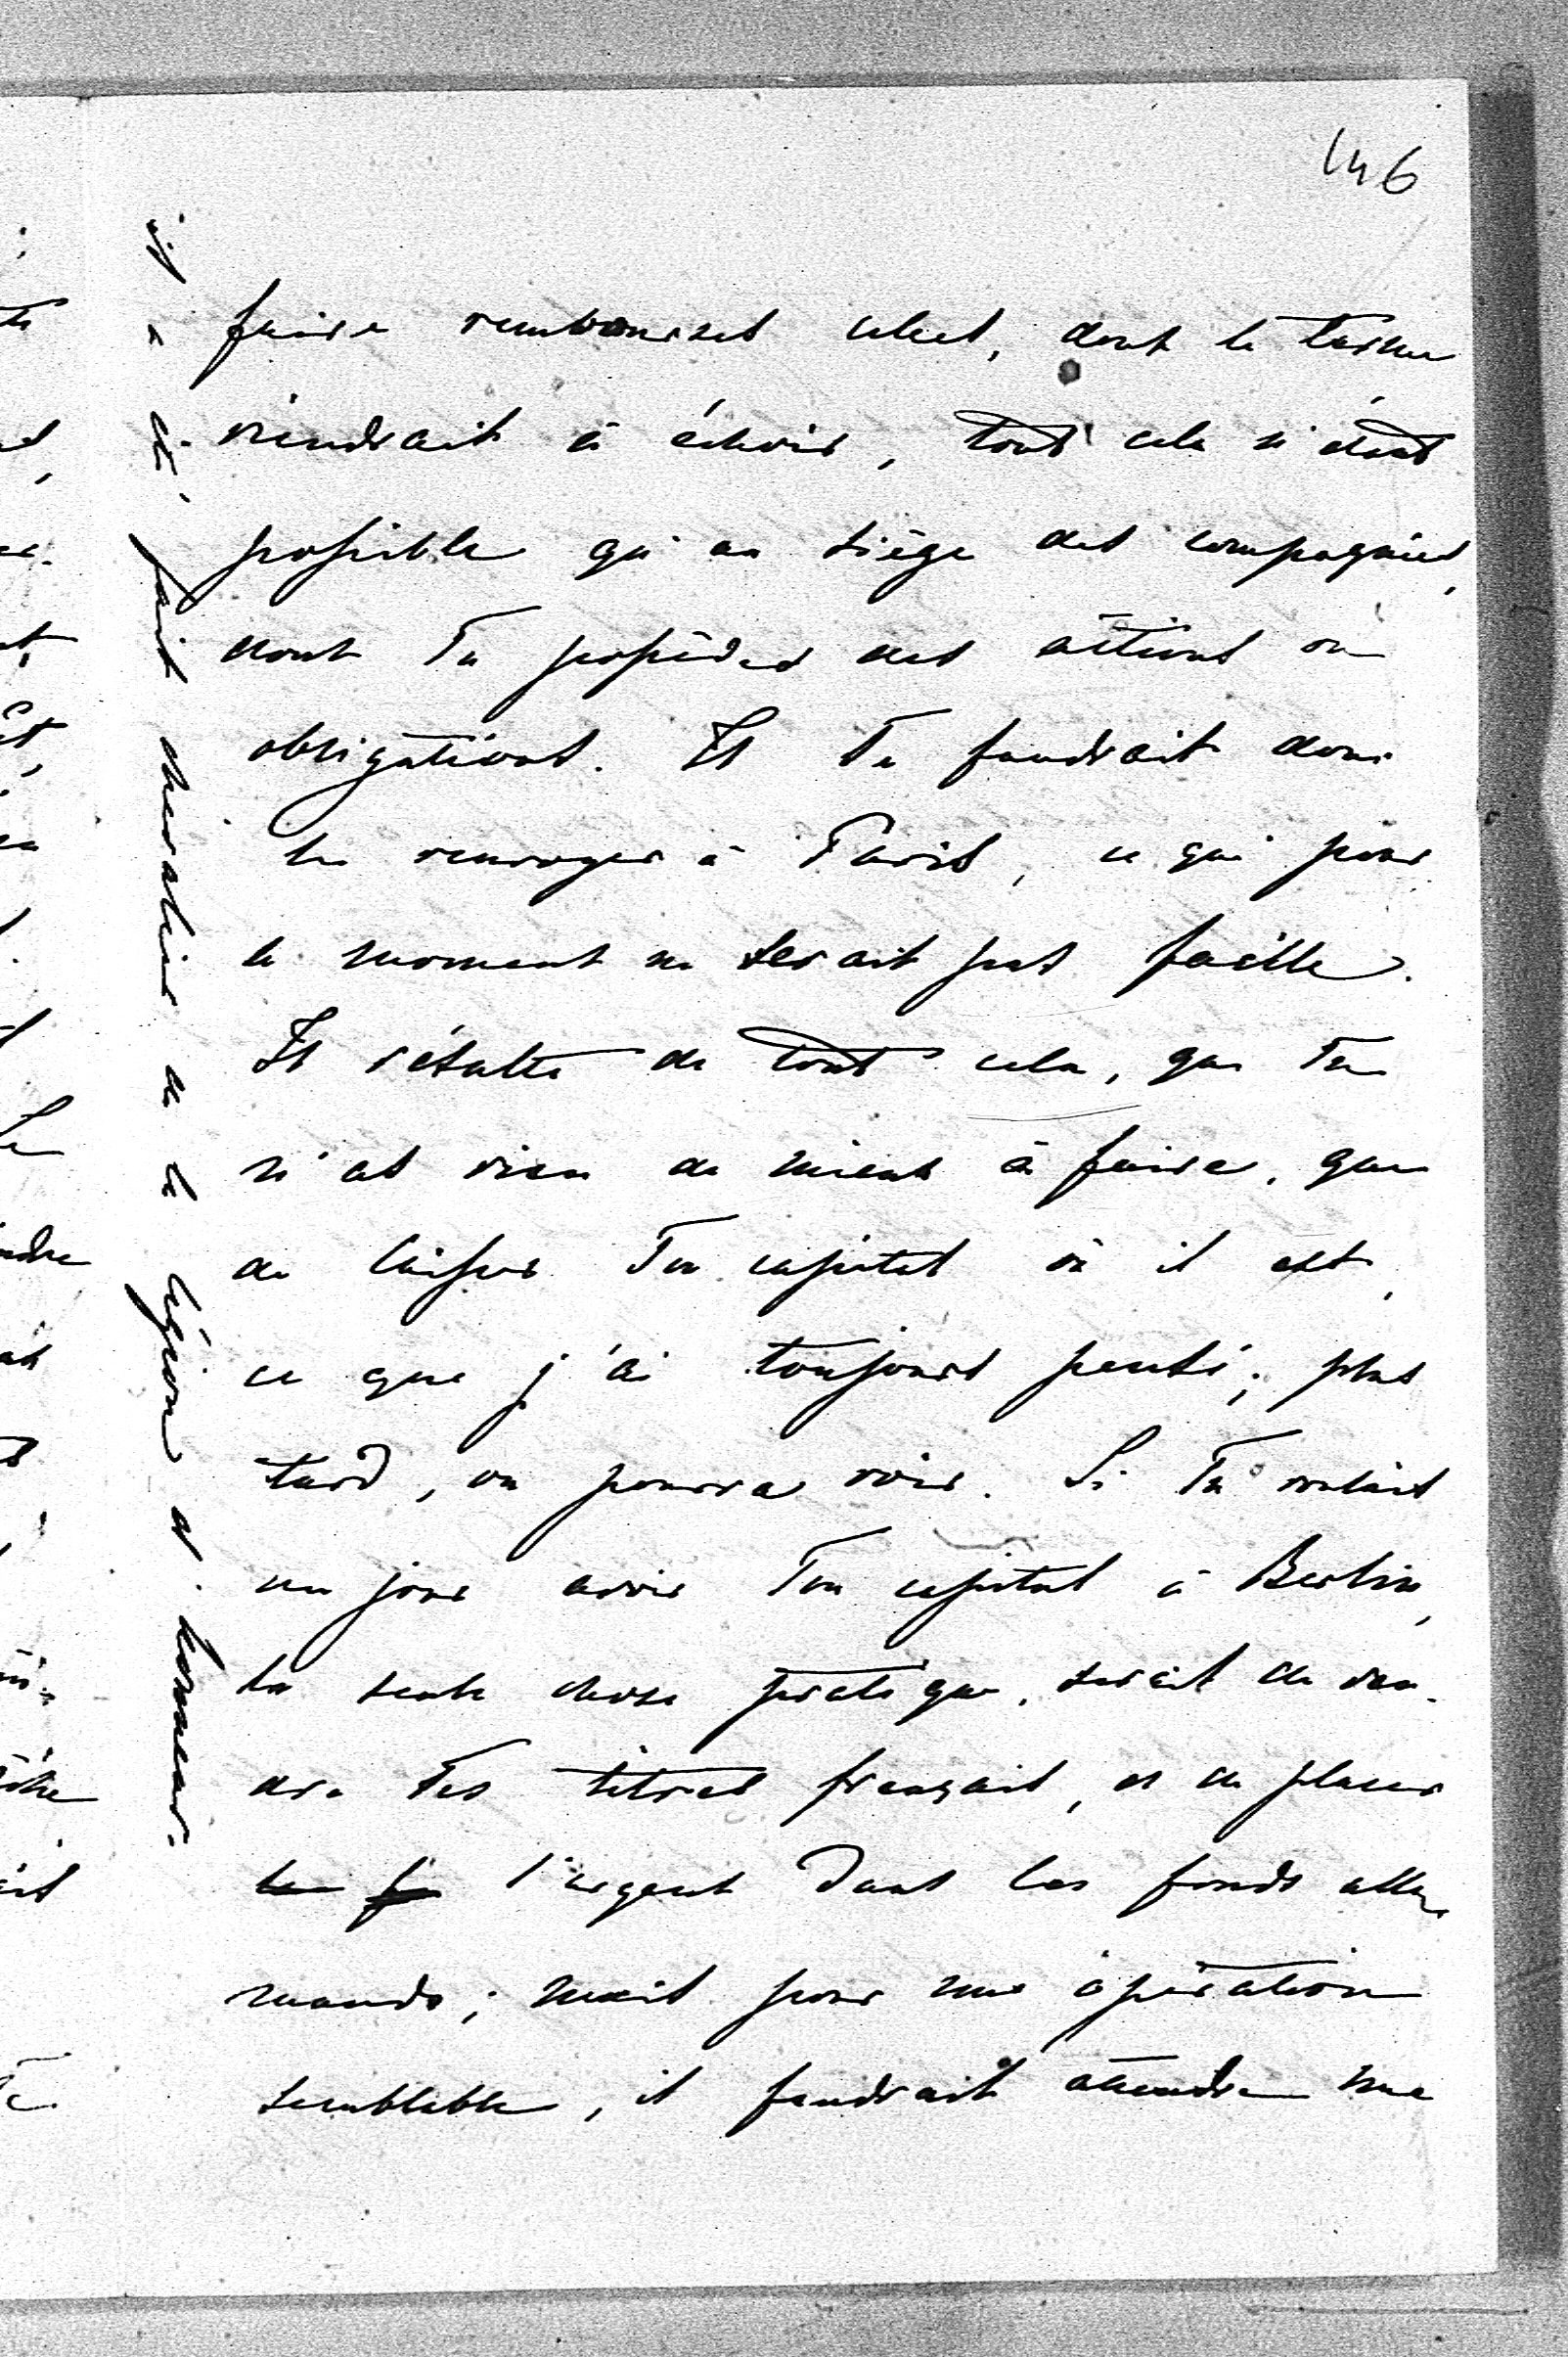 146
faire rembourser celles, dont le terme
viendrait à échoir, tout cela n'étant
possible qu'au siège des compagnies,
dont Tu possèdes des actions ou
obligations. Il Te faudrait donc
les renvoyer à Paris, ce qui pour
le moment ne serait pas facile.
Il résulte de tout cela, que Tu
n'as rien de mieux à faire, que
de laisser Ton capital où il est,
ce que j'ai toujours pensé; plus
tard, on pourra voir. Si Tu voulais
un jour avoir Ton capital à Berlin,
la seule chose pratique, serait de ven-
dre Tes titres français, et de placer
l'argent dans les fonds alle-
mands; mais pour une opération
semblable, il faudrait attendre une
a été fait chevalier de la légion d'honneur.